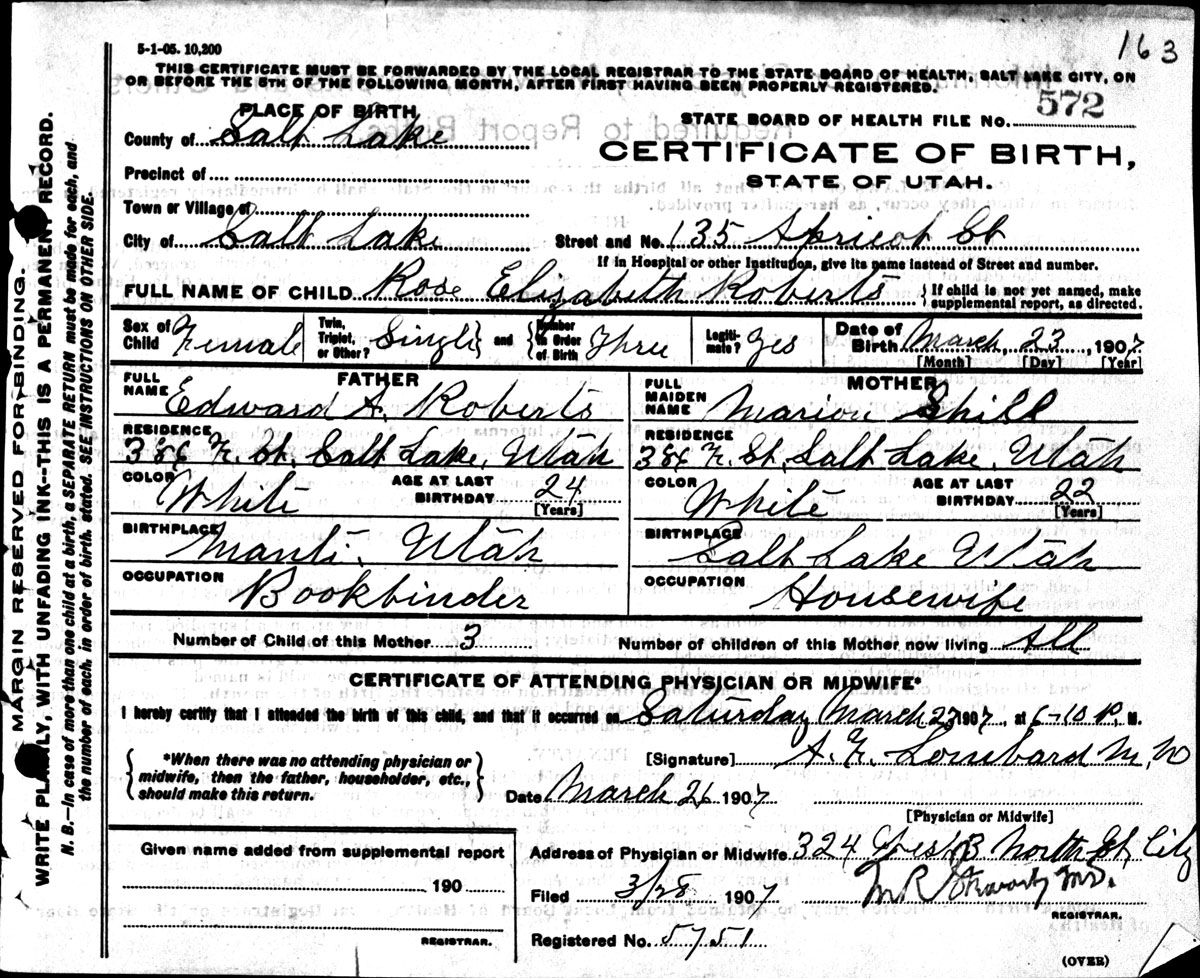 163
5-1-05. 10,200
THIS CERTIFICATE MUST BE FORWARDED BY THE LOCAL REGISTRAR TO THE STATE BOARD OF HEALTH, SALT LAKE CITY, ON
OR BEFORE THE 5TH OF THE FOLLOWING MONTH, AFTER FIRST HAVING BEEN PROPERLY REGISTERED.
PLACE OF BIRTH
STATE BOARD OF HEALTH FILE NO. 572
County of Salt Lake
CERTIFICATE OF BIRTH,
STATE OF UTAH.
Precinct of
Town or Village of
City of Salt Lake Street and No. 135 Apricot St
If in Hospital or other Institution, give its name instead of Street and number.
FULL NAME OF CHILD Rose Elizabeth Roberts { If child is not yet named, make
supplemental report, as directed.
Sex of Child Female Twin, Triplet, or Other? Single } and { Number in Order of Birth Three Legiti- mate? Yes Date of Birth March 23, 1907
[Month] [Day] [Year]
FATHER MOTHER
FULL NAME Edward A. Roberts FULL MAIDEN NAME Marion Shill
RESIDENCE RESIDENCE
St. Salt Lake, Utah St, Salt Lake, Utah
COLOR White AGE AT LAST BIRTHDAY 24 [Years] COLOR White AGE AT LAST BIRTHDAY 22 [Years]
BIRTHPLACE Manti, Utah BIRTHPLACE Salt Lake Utah
OCCUPATION Bookbinder OCCUPATION Housewife
Number of Child of this Mother 3 Number of children of this Mother now living All
CERTIFICATE OF ATTENDING PHYSICIAN OR MIDWIFE*
I hereby certify that I attended the birth of this child, and that it occurred on Saturday March 23 1907, at 6-10 P. M.
{ *When there was no attending physician or
midwife, then the father, householder, etc.,
should make this return. }
[Signature] Lombard M.D
Date March 26 1907
[Physician or Midwife]
Given name added from supplemental report
190
REGISTRAR.
Address of Physician or Midwife 324 West North St, City
Filed 3/28 1907
REGISTRAR.
Registered No. 5751
(OVER)
MARGIN RESERVED FOR BINDING.
WRITE PLAINLY, WITH UNFADING INK--THIS IS A PERMANENT RECORD.
N. B.--In case of more than one child at a birth, a SEPARATE RETURN must be made for each, and
the number of each, in order of birth, stated. SEE INSTRUCTIONS ON OTHER SIDE.